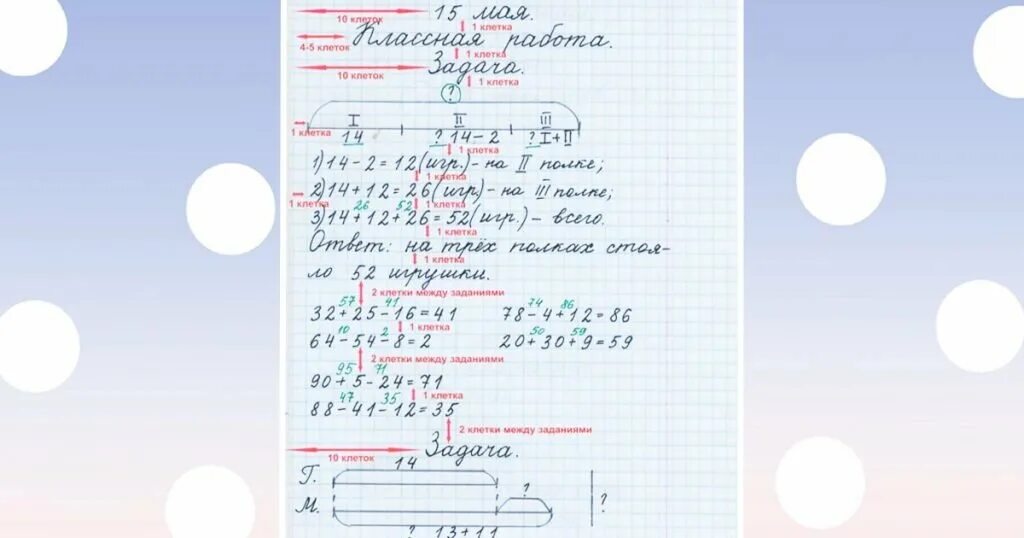 10 клеток 15 мая.
1 клетка
4-5 клеток Классная работа.
1 клетка
10 клеток Задача.
1 клетка
?
I II III
1 клетка 14 ? 14-2 ? I+II
1 клетка
1) 14-2=12(игр.)- на II полке;
1 клетка
2) 14+12=26(игр.)- на III полке;
1 клетка 26 52 1 клетка
3) 14+12+26=52(игр.)- всего.
1 клетка
Ответ: на трёх полках стоя-
1 клетка
ло 52 игрушки.
2 клетки между заданиями
57 41 74 86
32+25-16=41 78-4+12=86
10 2 1 клетка 50 59
64-54-8=2 20+30+9=59
2 клетки между заданиями
95 71
90+5-24=71
47 35 1 клетка
88-41-12=35
2 клетки между заданиями
10 клеток Задача.
14
Г.
?
М. ?
? 13+11